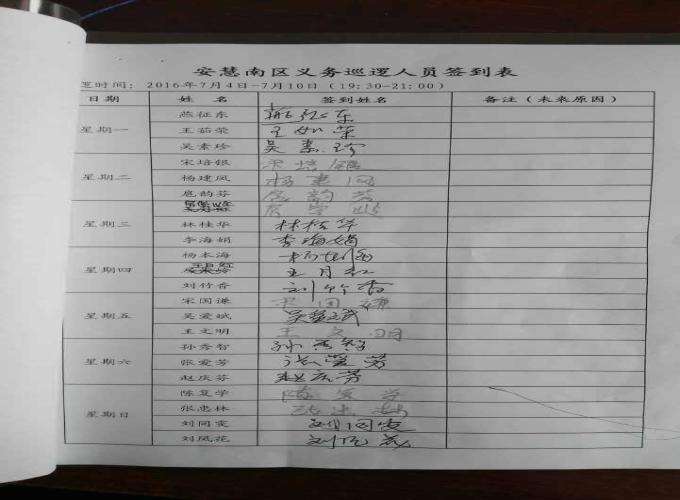 安慧南区义务巡逻人员签到表
时间: 2016年7月4日-7月10日 (19:30-21:00)
日期 姓 名 签到姓名 备注（未来原因）
星期一
陈征东
王茹荣 王如荣
吴素珍 吴素珍
星期二
宋培银 宋培银
杨建凤 杨建凤
扈韵芬 扈韵芬
星期三
林桂华 林桂华
李海娟 李海娟
星期四
杨本海
王月红
刘竹香 刘竹香
星期五
宋国谦 宋国谦
吴爱斌 吴爱斌
王文明 王文明
星期六
孙秀智 孙秀智
张爱芳 张爱芳
赵庆芬 赵庆芬
星期日
陈复学 陈复学
张忠林 张忠林
刘同雯 刘同雯
刘凤花 刘凤花